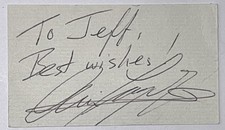 To Jeff,
Best wishes!